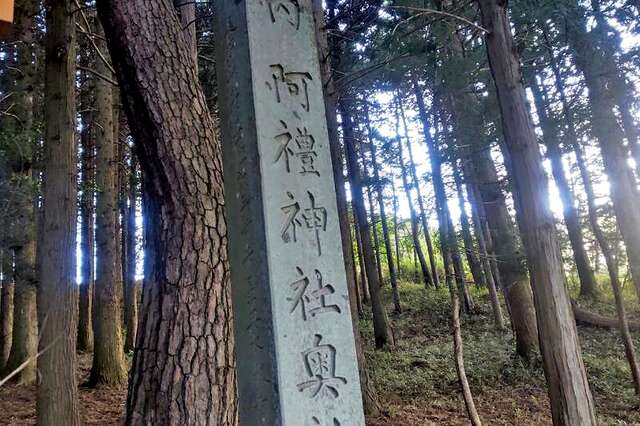 阿禮神社奥